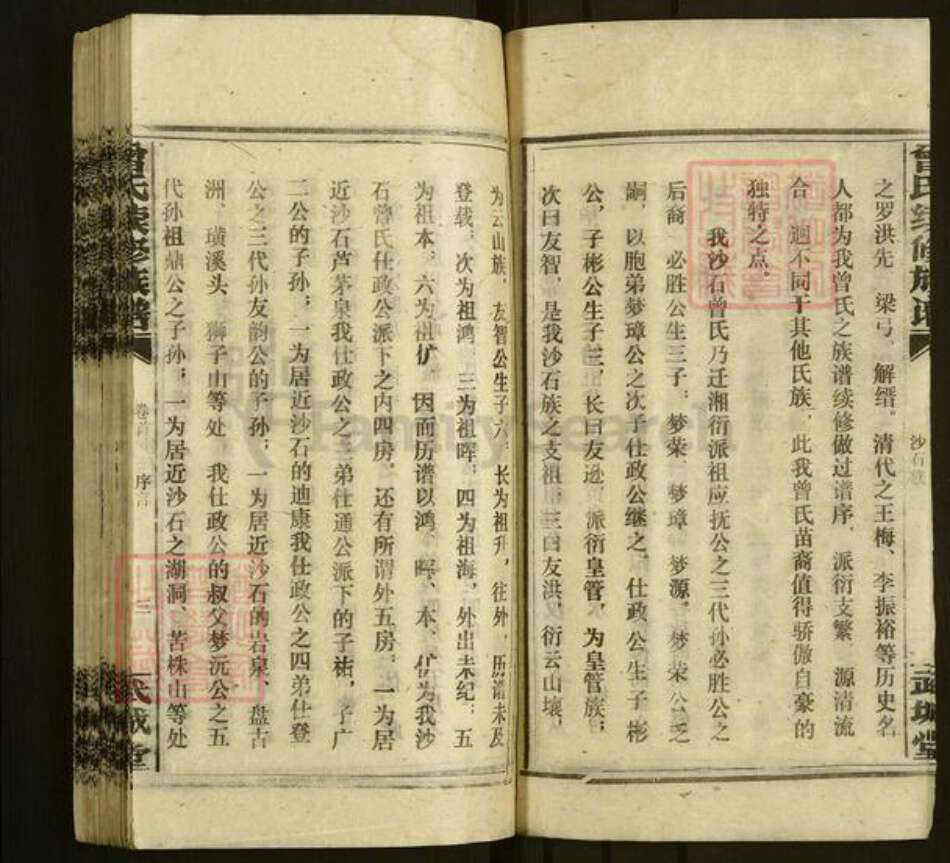 曾氏续修族谱
沙石族
武城堂
之罗洪先、梁弓、解缙。清代之王梅、李振裕等历史名
人都为我曾氏之族谱续修做过谱序，派衍支繁，源清流
合，迥不同于其他氏族，此我曾氏苗裔值得骄傲自豪的
独特之点。
我沙石曾氏乃迁湘衍派祖应抚公之三代孙必胜公之
后裔。必胜公生三子。梦荣、梦璋、梦源。梦荣公乏
嗣，以胞弟梦璋公之次子仕政公继之。仕政公生子彬
公，子彬公生子三，长曰友逊，派衍皇管，为皇管族；
次曰友智，是我沙石族之支祖，三曰友洪，衍云山壤，
为云山族。友智公生子六，长为祖升，往外，历谱未及
登载；次为祖鸿，三为祖晖，四为祖海，外出未纪；五
为祖本，六为祖扩，因而历谱以鸿、晖、本、扩为我沙
石曾氏仕政公派下之内四房。还有所谓外五房，一为居
近沙石芦茅泉我仕政公之三弟仕通公派下的子祐，子广
二公的子孙；一为居近沙石的迪康我仕政公之四弟仕登
公之三代孙友韵公的子孙；一为居近沙石的岩泉、盘古
洲、璜溪头、狮子山等处，我仕政公的叔父梦沅公之五
代孙祖鼎公之子孙；一为居近沙石之湖洞、苦株山等处
曾氏续修族谱
卷首
序言
三
武城堂